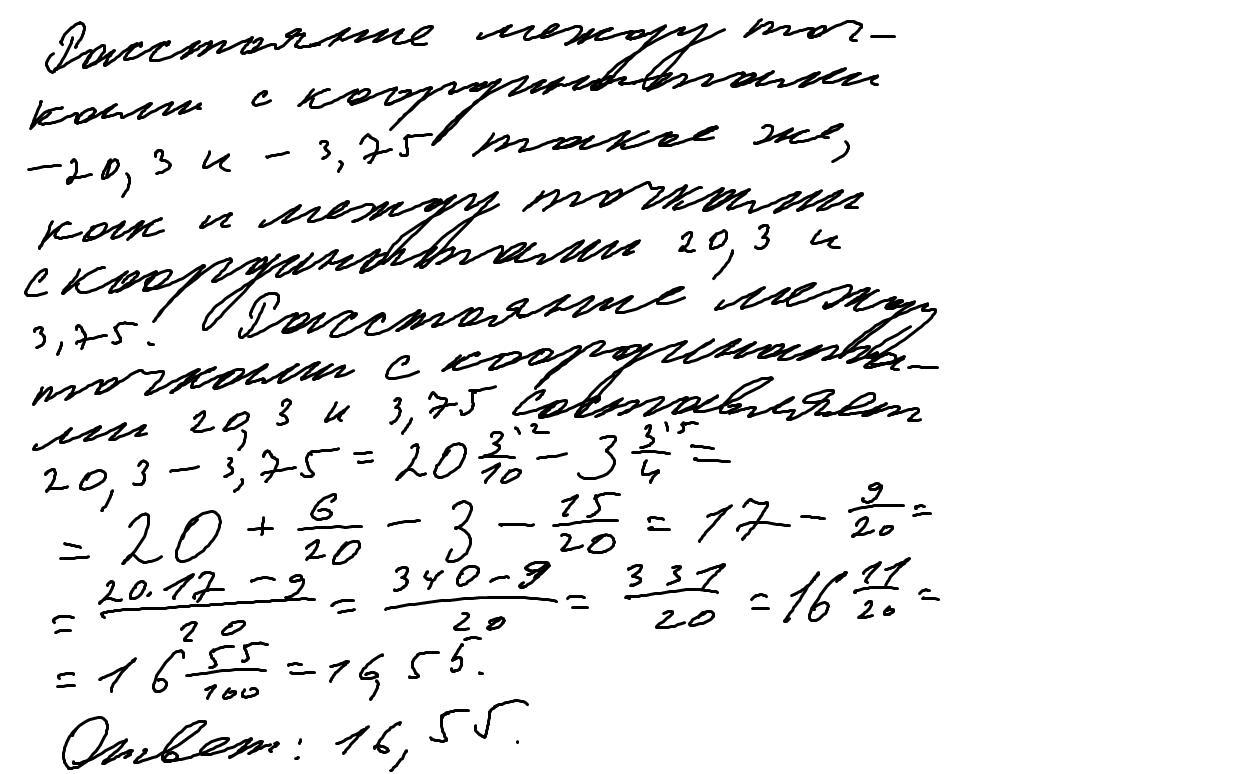 Расстояние между точ-
ками с координатами
-20,3 и -3,75 такое же,
как и между точками
с координатами 20,3 и
3,75. Расстояние между
точками с координата-
ми 20,3 и 3,75 составляет
20,3 - 3,75 = 20 3/10 '2 - 3 3/4 '5 =
= 20 + 6/20 - 3 - 15/20 = 17 - 9/20 =
= (20·17 - 9)/20 = (340 - 9)/20 = 331/20 = 16 11/20 =
= 16 55/100 = 16,55.
Ответ: 16,55.